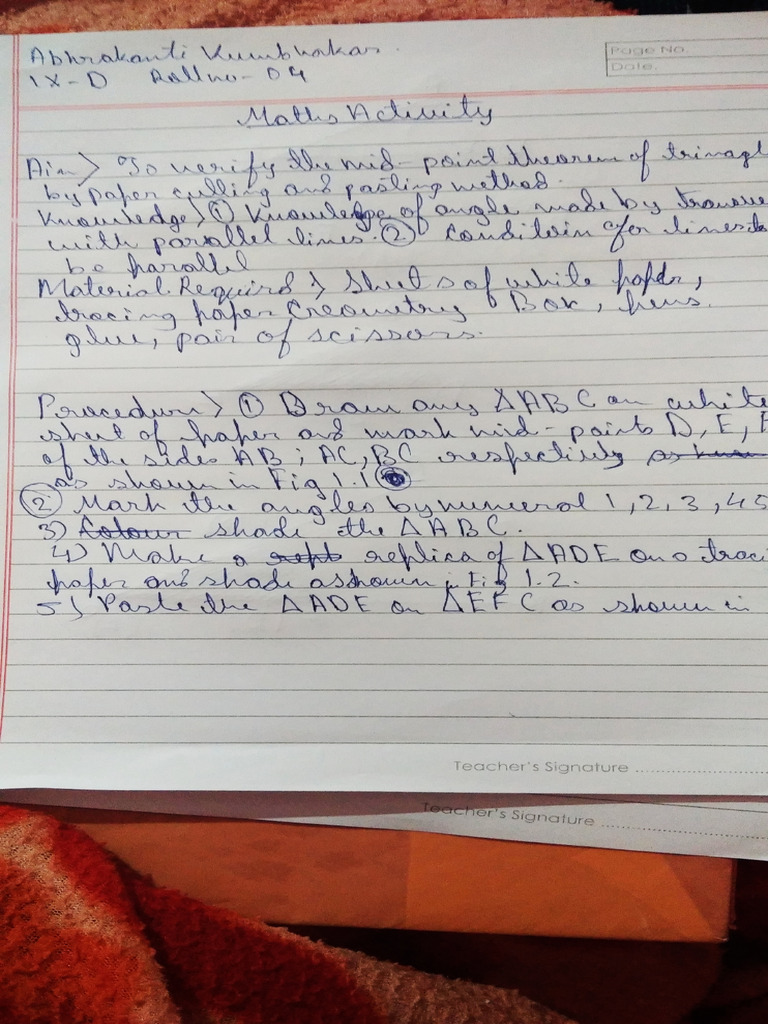 Abhrakanti Kumbhakar.
IX-D Roll no-04
Page No.
Date.
Maths Activity
Aim> To verify the mid-point theorem of trinagl
by paper cutting and pasting method.
Knowledge> ① Knowledge of angle made by transve
with parallel lines. ② Condition for lines to
be parallel
Material Required > Sheets of white paper,
tracing paper Geometry Box, pens.
glue, pair of scissors.
Procedure> ① Draw any ΔABC on white
sheet of paper and mark mid-points D, E, F
of the sides AB; AC, BC respectively
as shown in Fig 1.1
② Mark the angles by numeral 1, 2, 3, 4 5
3) Colour shade the ΔABC.
4) Make a replica of ΔADE on a traci
paper and shade as shown in Fig 1.2.
5) Paste the ΔADE on ΔEFC as shown in
Teacher's Signature ..................
Teacher's Signature ..................